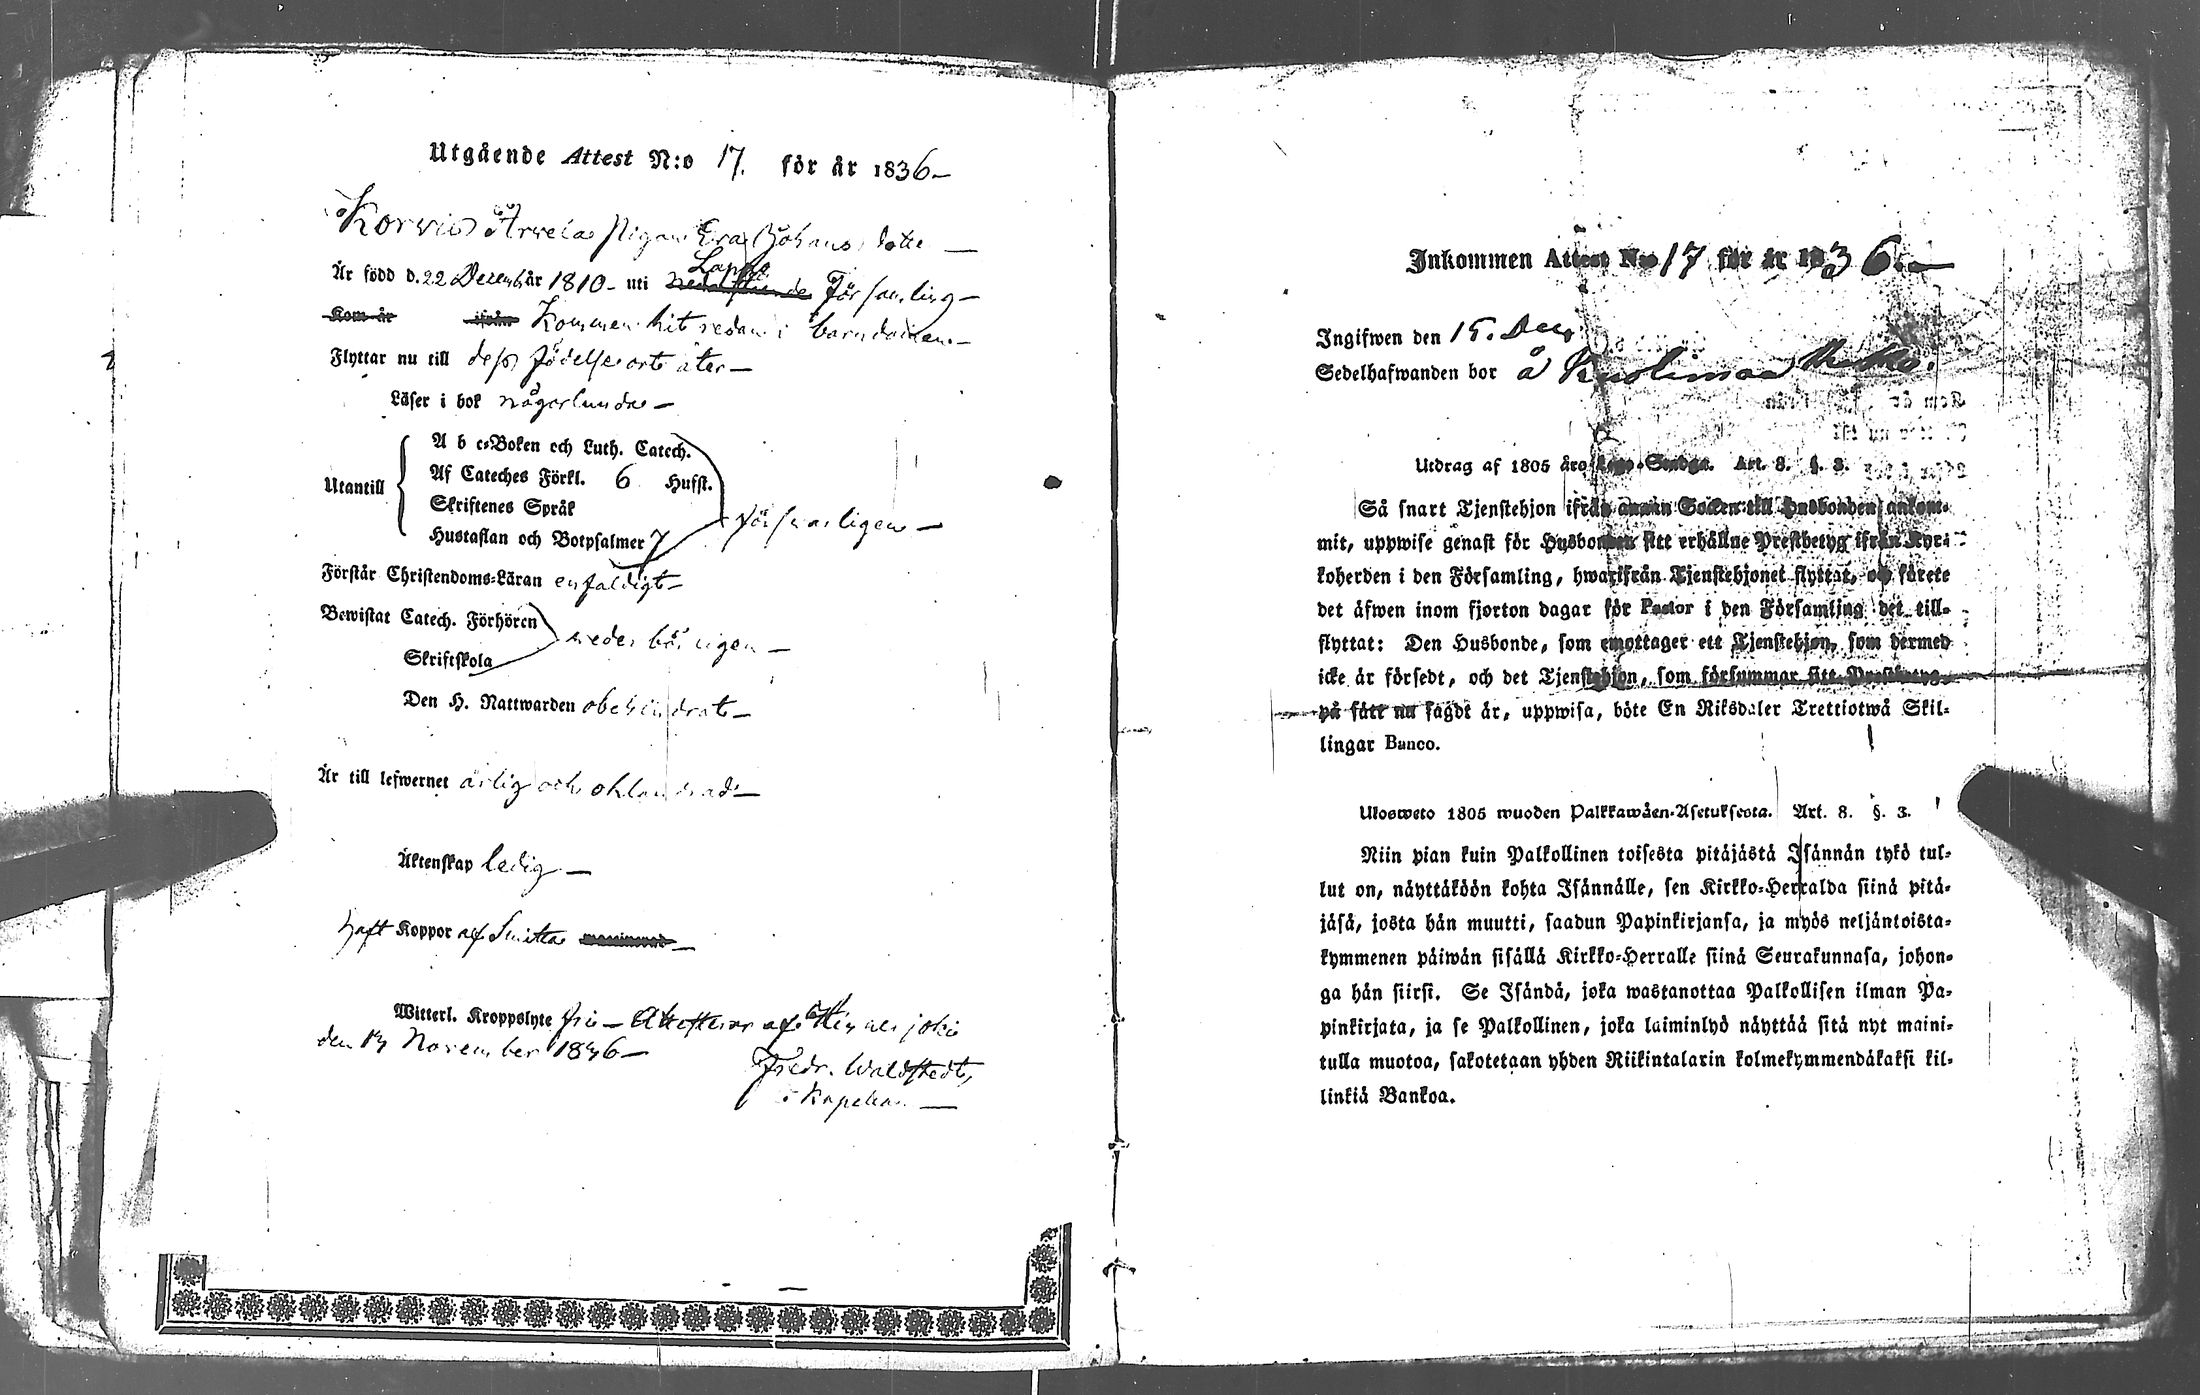 Utgående Attest N:o 17. för år 1836
Pigan Eva Johans dotter
Lappo
Är född d. 22 Decemb. år 1810 uti Församling
Kom år ifrån Kommen hit redan i barndomen
Flyttar nu till dess födelseort åter
Läser i bok någorlunda
Utantill
A b c-Boken och Luth. Catech.
Af Cateches Förkl. 6 Hufst.
Skriftenes Språk
Hustaflan och Botpsalmer 7
försvarligen
Förstår Christendoms-Läran enfaldigt
Bewistat Catech. Förhören
Skriftskola
vederbörligen
Den H. Nattwarden obehindrat
Är till lefwernet ärlig och oklandrad
Äktenskap ledig
haft Koppor af Smitta
Witterl. Kroppslyte fri Attesterar af
den 13 November 1836
Fredr. Waldstedt,
Kapellan
Inkommen Attest N:o 17 för år 1836.
Ingifwen den 15. Dec.
Sedelhafwanden bor å
Utdrag af 1805 års Lego-Stadga. Art. 8. §. 3.
Så snart Tjenstehjon ifrån annan Socken till Husbonden ankom-
mit, uppwise genast för Husbonden sitt erhållne Prestbetyg ifrån Kyr-
koherden i den Församling, hwarifrån Tjenstehjonet flyttat, och förete
det äfwen inom fjorton dagar för Pastor i den Församling det till-
flyttat: Den Husbonde, som emottager ett Tjenstehjon, som dermed
icke är försedt, och det Tjenstehjon, som försummar sitt Prestbetyg
på sätt nu sagdt är, uppwisa, böte En Riksdaler Trettiotwå Skil-
lingar Banco.
Ulosweto 1805 wuoden Palkkawäen-Asetuksesta. Art. 8. §. 3.
Niin pian kuin Palkollinen toisesta pitäjästä Isännän tykö tul-
lut on, näyttäköön kohta Isännälle, sen Kirkko-Herralda siinä pitä-
jäsä, josta hän muutti, saadun Papinkirjansa, ja myös neljäntoista-
kymmenen päiwän sisällä Kirkko-Herralle siinä Seurakunnasa, johon-
ga hän siirsi. Se Isändä, joka wastanottaa Palkollisen ilman Pa-
pinkirjata, ja se Palkollinen, joka laiminlyö näyttää sitä nyt maini-
tulla muotoa, sakotetaan yhden Riikintalarin kolmekymmendäkaksi kil-
linkiä Bankoa.